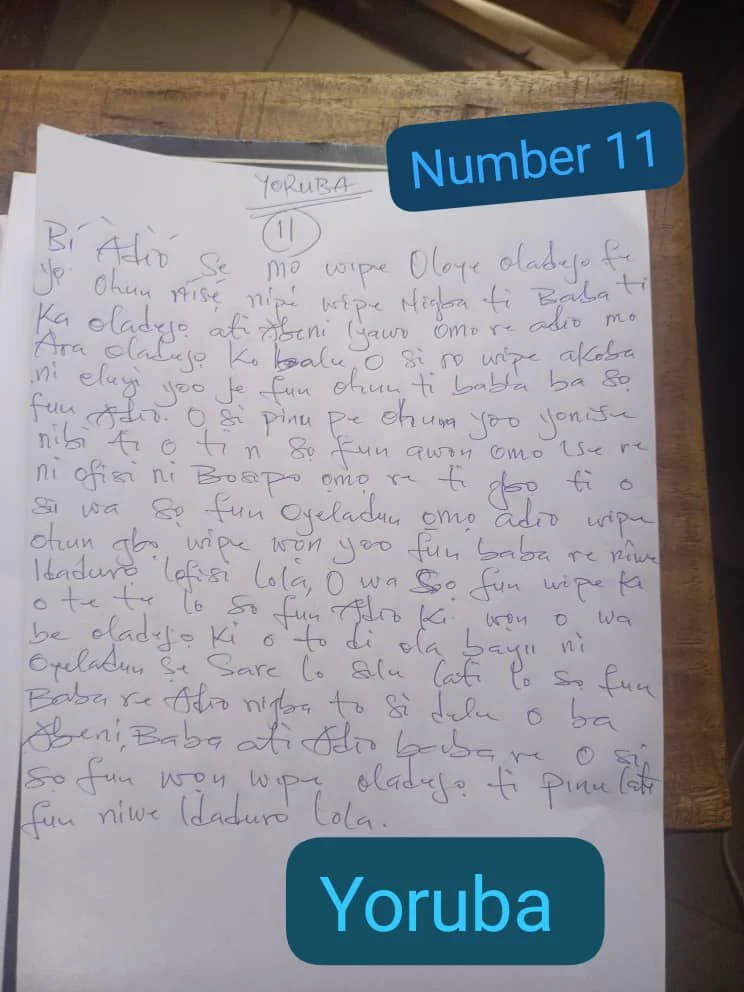 Number 11
YORUBA
11
Bí Àdìó Se mo wipe Oloye oladejo fe
yọ Ohun níṣẹ́ nípé wipe Nigba ti Baba ti
Ka oladejọ ati Abeni Iyawo omo re adio mo
Ara oladejọ Ko balu O si ro wipe akoba
ni eleyi yoo je fun ohun ti babla ba sọ
fun Adio. O si pinu pe ohun yoo yonise
nibi ti o ti n so fun awon omo ise re
ni ofisi ni Bosepo ọmọ re ti gbo ti o
si wa sọ fun Oyeladun ọmọ adio wipe
ohun gbọ wipe wọn yoo fun baba re níwe
Idaduro lofisi lola, O wa Sọ fun wipe ki
o te te lo so fun Adio ki won o wa
be oladejọ ki o to di ola bayii ni
Oyeladun Ṣe Sare lo sile lati lo sọ fun
Baba re Adio nigba to si dele o ba
Abeni, Baba ati Adio baba re O si
So fun wọn wipe oladejọ ti pinu lati
fun niwe Idaduro lola.
Yoruba